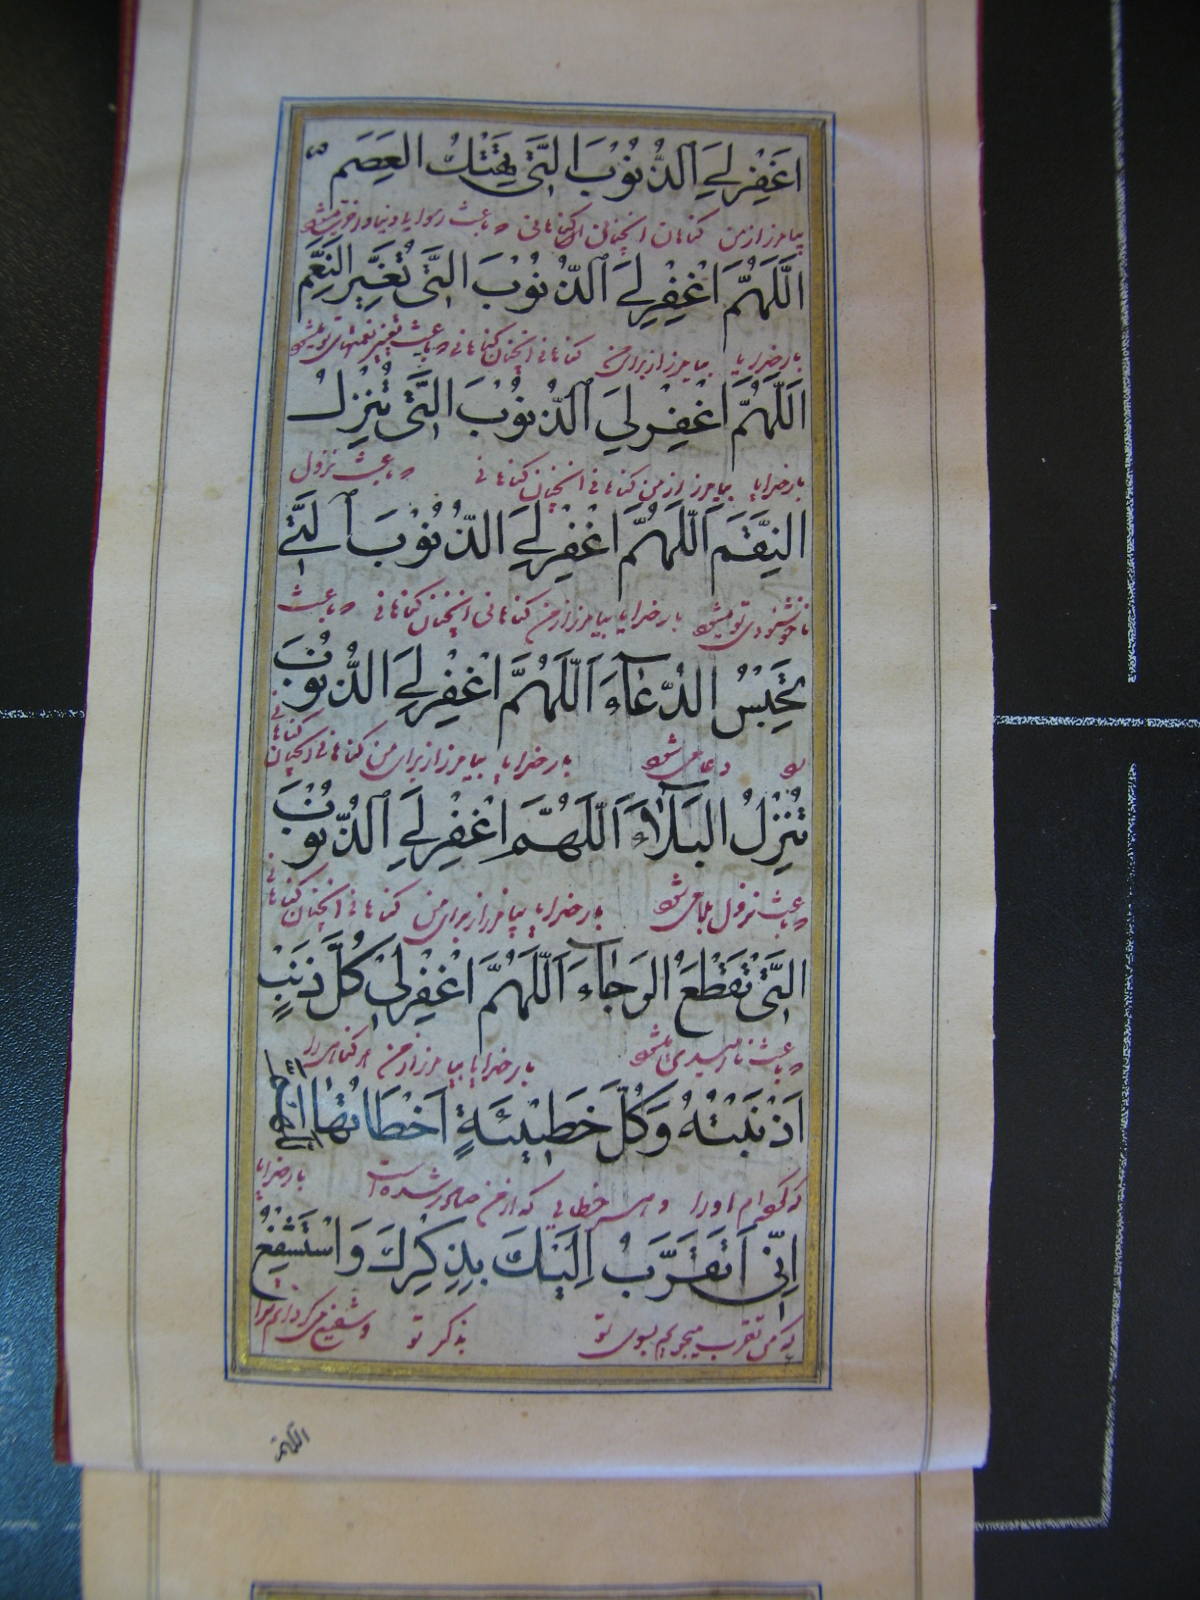 اغْفِرْ لِيَ الذُّنُوْبَ الَّتَى تَهْتِكُ العِصَمَ
بیامرز از من گناهان انچنانی گناهانی که باعث رسوایی دنیا و آخرت میشود
اَللّهُمَّ اغْفِرْ لِيَ الذُّنُوْبَ الَّتَى تُغَيِّرُ النِّعَمَ
بار خدایا بیامرز از برای من گناهانی انچنان گناهانی که باعث تغییر نعمتهای تو میشود
اَللّهُمَّ اغْفِرْ لِيَ الذُّنُوْبَ الَّتَى تُنْزِلُ
بار خدایا بیامرز از من گناهانی انچنان گناهانی که باعث نزول
النِّقَمَ اَللّهُمَّ اغْفِرْ لِيَ الذُّنُوْبَ الَّتَى
ناخوشنودی تو میشود بار خدایا بیامرز از من گناهانی انچنان گناهانی که باعث
تَحْبِسُ الدُّعَآءَ اَللّهُمَّ اغْفِرْ لِيَ الذُّنُوْبَ
دعا می شود بار خدایا بیامرز از برای من گناهانی انچنان گناهانی
تُنْزِلُ البَلَآءَ اَللّهُمَّ اغْفِرْ لِيَ الذُّنُوْبَ
که باعث نزول بلا می شود بار خدایا بیامرز از برای من گناهانی انچنان گناهانی
الَّتَى تَقْطَعُ الرَجَآءَ اَللّهُمَّ اغْفِرْ لِيْ كُلَّ ذَنْبٍ
که باعث نا امیدی میشود بار خدایا بیامرز از من هر گناهی را
اَذْنَبْتُهُ وَكُلَّ خَطِيْئَةٍ اَخْطَاتُهَا اَللّهُمَّ
که کرده ام او را و هر خطایی که از من صادر شده است بار خدایا
اِنّى اَتَقَرَّبُ اِلَيْكَ بِذِكْرِكَ وَاسْتَشْفِعُ
که من تقرب میجویم بسوی تو بذکر تو و شفیع می گردانم ترا
اللّهم